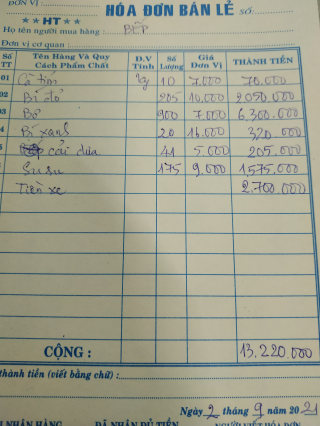 ĐƠN VỊ :
HÓA ĐƠN BÁN LẺ
★★ HT ★★
SỐ:
Họ tên người mua hàng : BẾP
Đơn vị cơ quan :
Số TT Tên Hàng Và Quy Cách Phẩm Chất Đ.V Tính Số Lượng Giá Đơn Vị THÀNH TIỀN
01 Cà tím kg 10 7,000 70.000
02 Bí đỏ 205 10,000 2050.000
03 Bơ 900 7,000 6.300.000
4 Bí xanh 20 16,000 320.000
cải dưa 41 5,000 205.000
Su su 175 9,000 1,575.000
Tiền xe 2.700.000
CỘNG : 13.220.000
thành tiền (viết bằng chữ) :
Ngày 2 tháng 9 năm 2021
NHẬN HÀNG ĐÃ NHẬN ĐỦ TIỀN NGƯỜI VIẾT HÓA ĐƠN